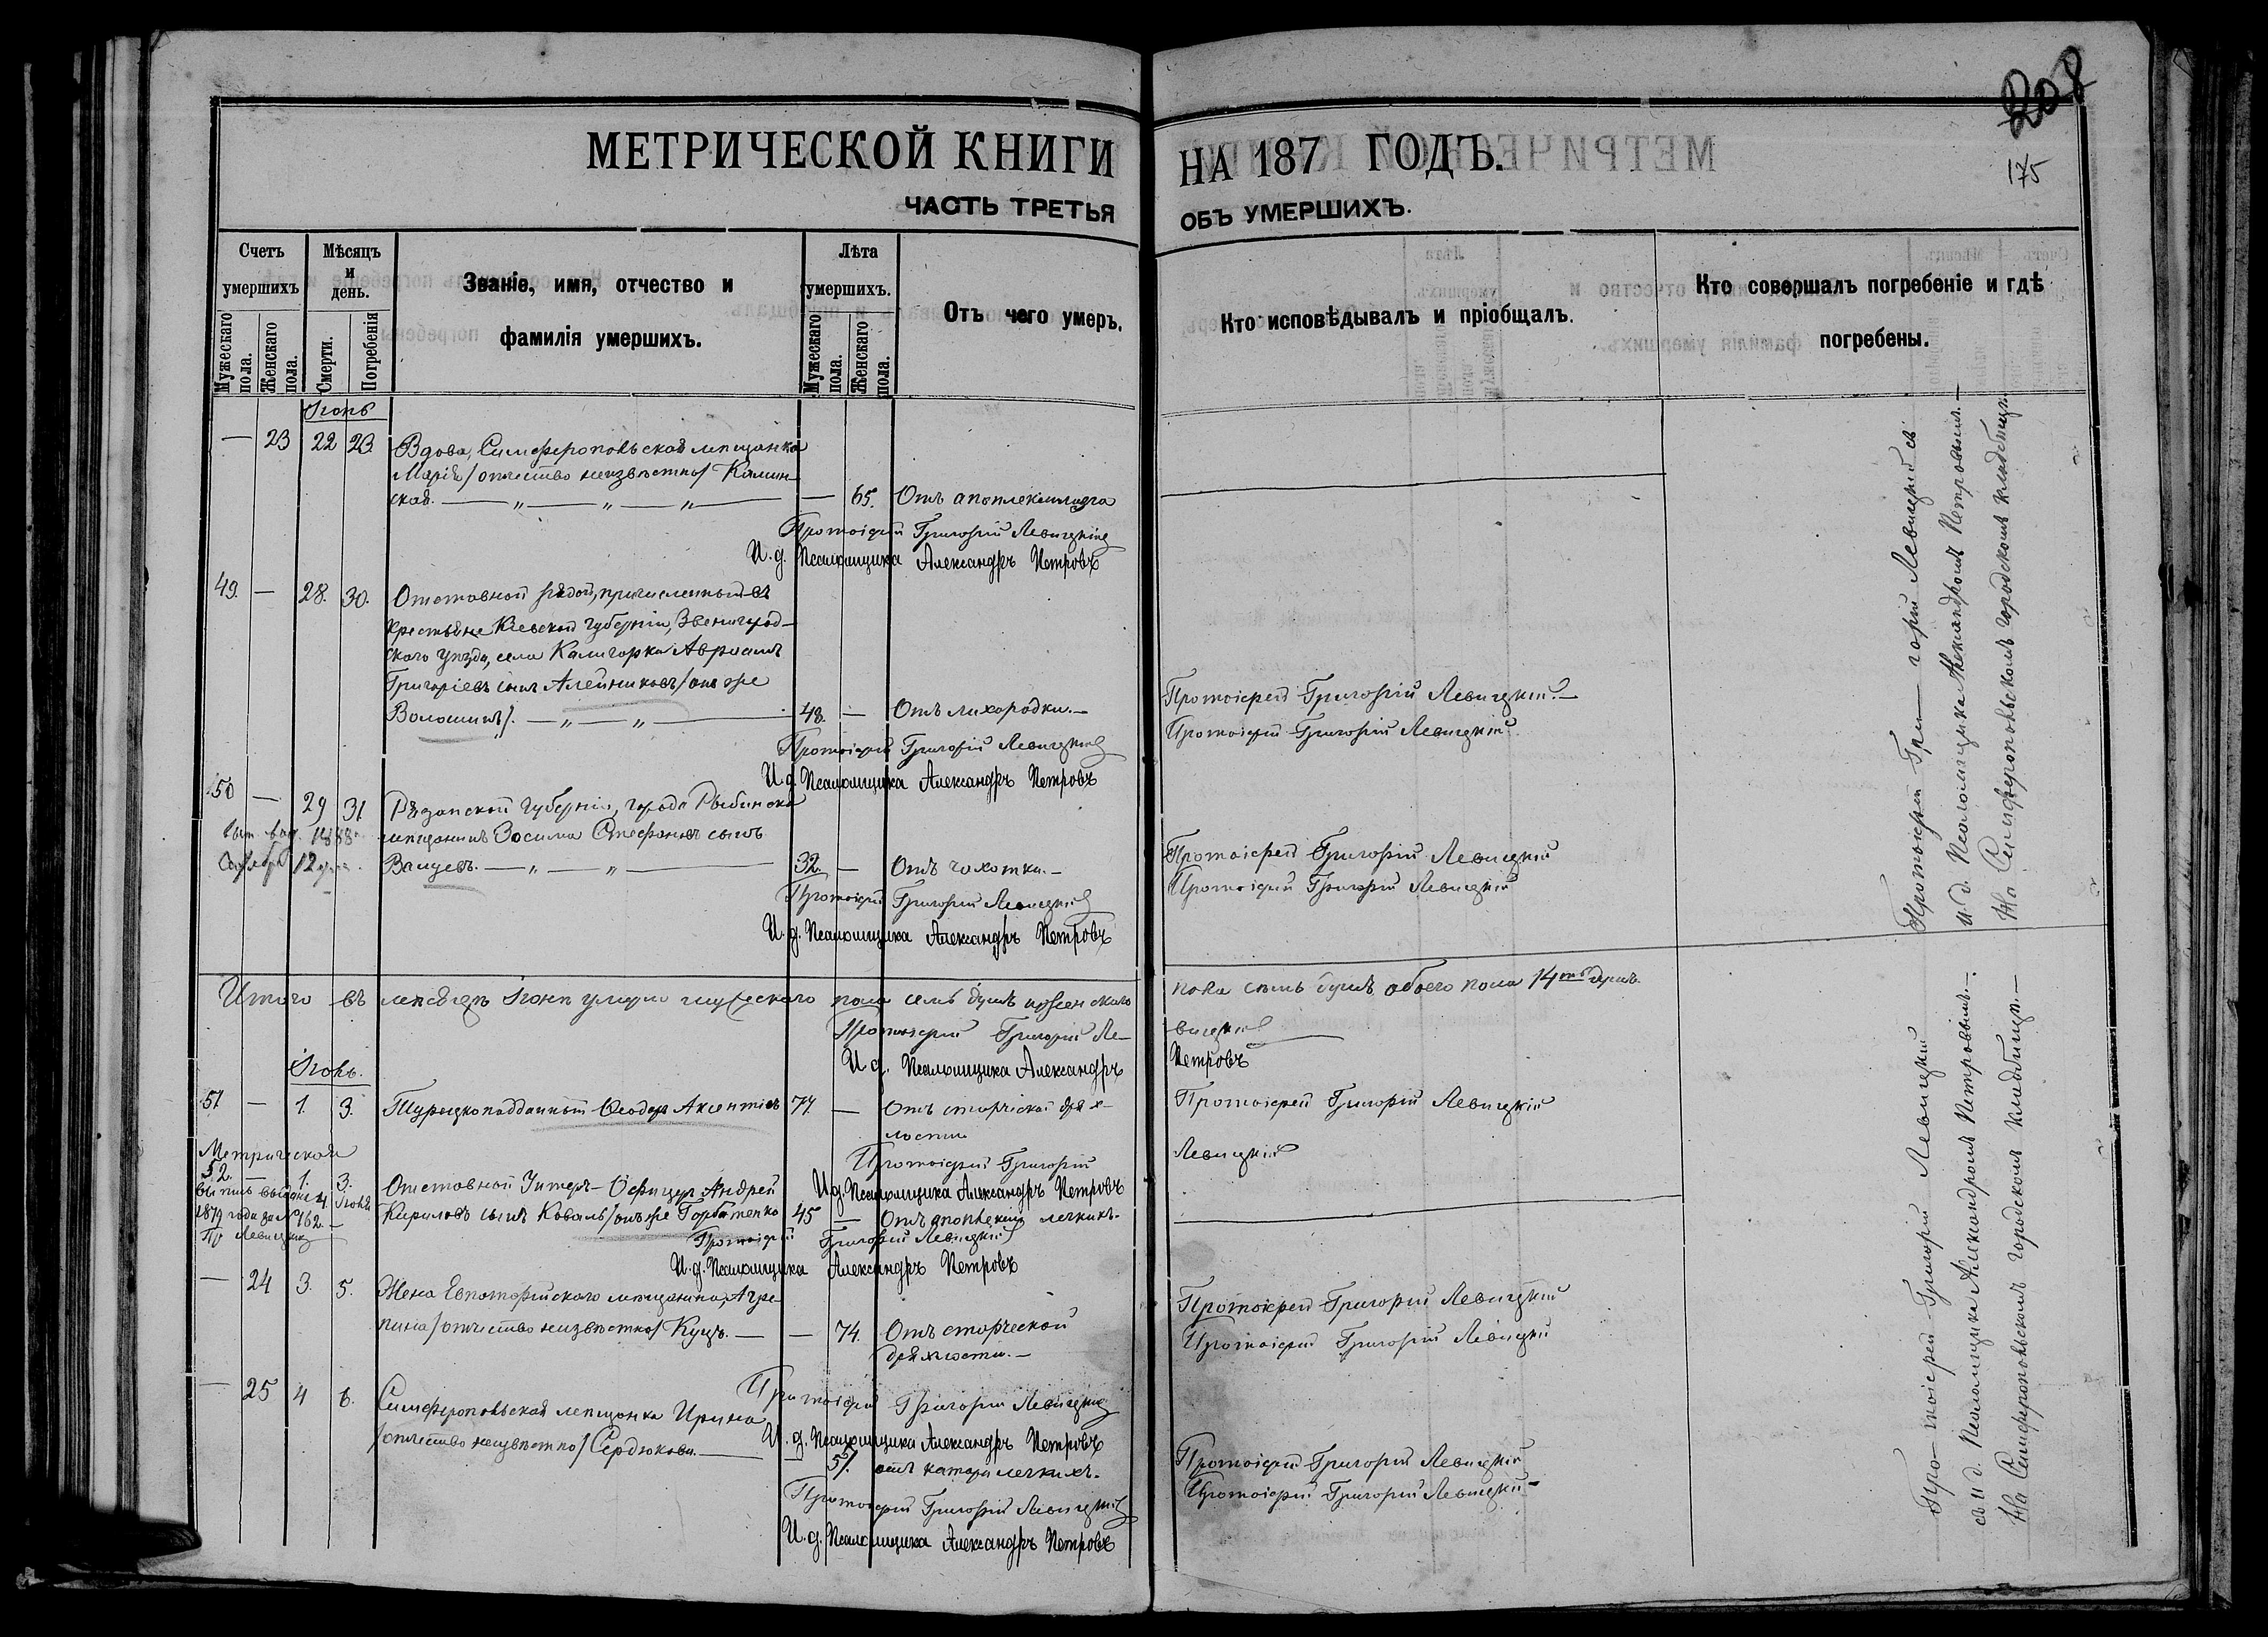 208
175
МЕТРИЧЕСКОЙ КНИГИ НА 187 ГОДЪ.
ЧАСТЬ ТРЕТЬЯ ОБЪ УМЕРШИХЪ.
Счетъ умершихъ
Мужескаго пола.
Женскаго пола.
Мѣсяцъ и день.
Смерти.
Погребенія
Званіе, имя, отчество и
фамилія умершихъ.
Лѣта умершихъ.
Мужескаго пола.
Женскаго пола.
Отъ чего умеръ.
Кто исповѣдывалъ и пріобщалъ.
Кто совершалъ погребеніе и гдѣ
погребены.
— 23 22 23. Вдова, Симферопольская мѣщанка
Марія /отчество неизвѣстно/ Калин-
ская. — „ — „ — „ — — 65. Отъ
Протоіерей Григорій Левицкій
И. д. Псаломщика Александръ Петровъ
49. — 28. 30. Отставной рядов, причисленный въ
крестьяне Кіевской губерніи, Звенигород-
скаго уѣзда, села Калигорка Авраамъ
Григоріевъ сынъ Алейниковъ /онъ же
Волошинъ/. — „ — „ — 48. — Отъ лихорадки. —
Протоіерей Григорій Левицкій. —
Протоіерей Григорій Левицкій
Протоіерей Григорій Левицкій
И. д. Псаломщика Александръ Петровъ
50 — 29 31. Рязанской губерніи, города Рыбинска
мѣщанинъ Зосима Стефановъ сынъ
Ващевъ. — „ — „ — 32. — Отъ чахотки. —
1888
12
Протоіерей Григорій Левицкій
Протоіерей Григорій Левицкій
Протоіерей Григорій Левицкій
И. д. Псаломщика Александръ Петровъ
Протоіерей Гри- горій Левицкій съ
и. д. Псаломщика Александромъ Петровымъ. —
На Симферопольскомъ городскомъ кладбищѣ.
Итого въ мѣсяцѣ Іюнѣ умерло мужескаго пола семь душъ женскаго пола семь душъ обоего пола 14ть душъ.
Протоіерей Григорій Левицкій
И. д. Псаломщика Александръ Петровъ
Іюль.
51 — 1. 3. Турецкоподданный Ѳеодоръ Аксентіевъ 77. — Отъ старческой дрях-
лости
Протоіерей Григорій Левицкій
Протоіерей Григорій Левицкій
И. д. Псаломщика Александръ Петровъ
Метрическая
52. — 1. 3. Отставной Унтеръ-Офицеръ Андрей
выпись выдана 4. Іюля
1879 года за № 162. —
Левицкій
Кириловъ сынъ Коваль /онъ же Горбатенко 45 — Отъ легкихъ.
Протоіерей Григорій Левицкій
И. д. Псаломщика Александръ Петровъ
— 24 3. 5. Жена Евпаторійскаго мѣщанина, Агре-
пина /отчество неизвѣстно/ Куцъ. — — 74. Отъ старческой
дряхлости. —
Протоіерей Григорій Левицкій
Протоіерей Григорій Левицкій
Протоіерей Григорій Левицкій
И. д. Псаломщика Александръ Петровъ
— 25 4 6. Симферопольская мѣщанка Ирина
/отчество неизвѣстно/ Сердюкова. — 57. отъ катара легкихъ.
Протоіерей Григорій Левицкій
Протоіерей Григорій Левицкій
Протоіерей Григорій Левицкій
И. д. Псаломщика Александръ Петровъ
Про- тоіерей Григорій Левицкій
съ и д. Псаломщика Александромъ Петровымъ. —
На Симферопольскомъ городскомъ кладбищѣ. —